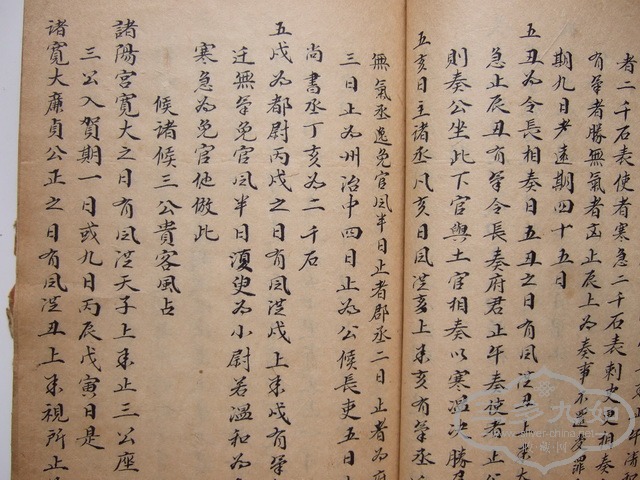 者二千石表使者寒急二千石表刺史更相奏
有氣者勝無氣者
止辰上為奏事不
期九日才遠期四十五日
五丑為令長相奏日五丑之日有風從丑上來
急止辰丑有氣令長奏府君止午奏使者止
則奏公坐此下官與土官相奏以寒温决勝
五亥日主諸丞凡亥日風從亥上來亥有氣丞
無氣丞逸免官風半日止者郡丞二日止者為
三日止為州治中四日止為公候長吏五日
尚書丞丁亥為二千石
五戌為都尉丙戌之日有風從戌上來戌有氣
迁無氣免官風半日
為小尉若溫和為
寒急為免官他倣此
候諸候三公貴客風占
諸陽宮寬大之日有風從天子上來止三公座
三公入賀期一日或九日丙辰戊寅日是
諸寬大廉貞公正之日有風從丑上來視所止